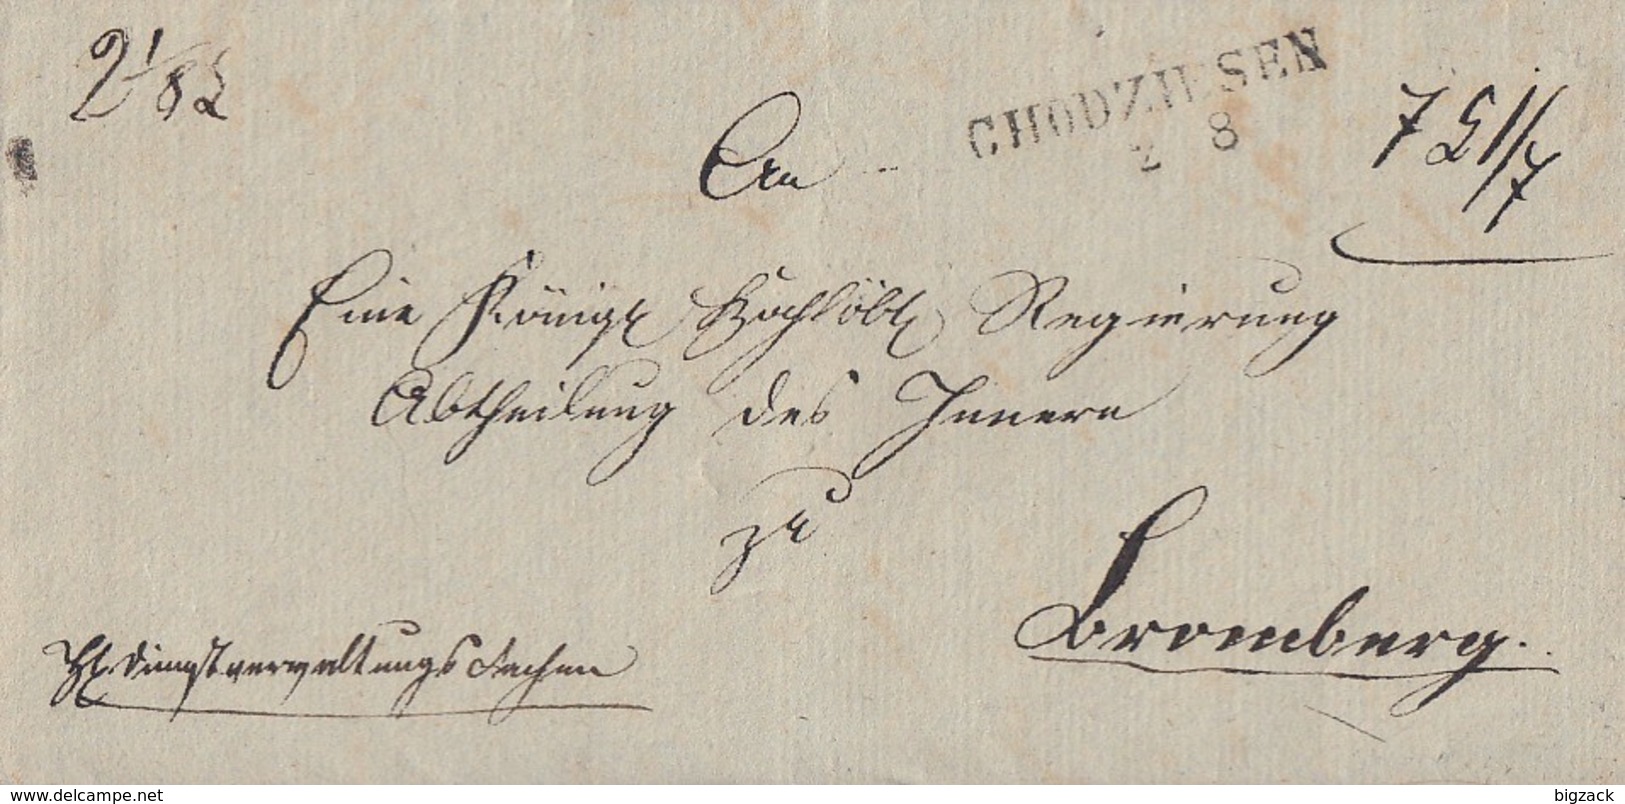 2 1/8 £
CHODZIESEN
2 8
7 £ 1/7
An
Eine Königl Hochlöbl Regierung
Abtheilung des Innern
zu
Bromberg.
Dienstverwaltungs Sachen
www.delcampe.net
bigzack